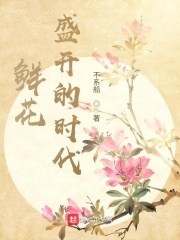 鲜花
盛开的时代
不系船
著